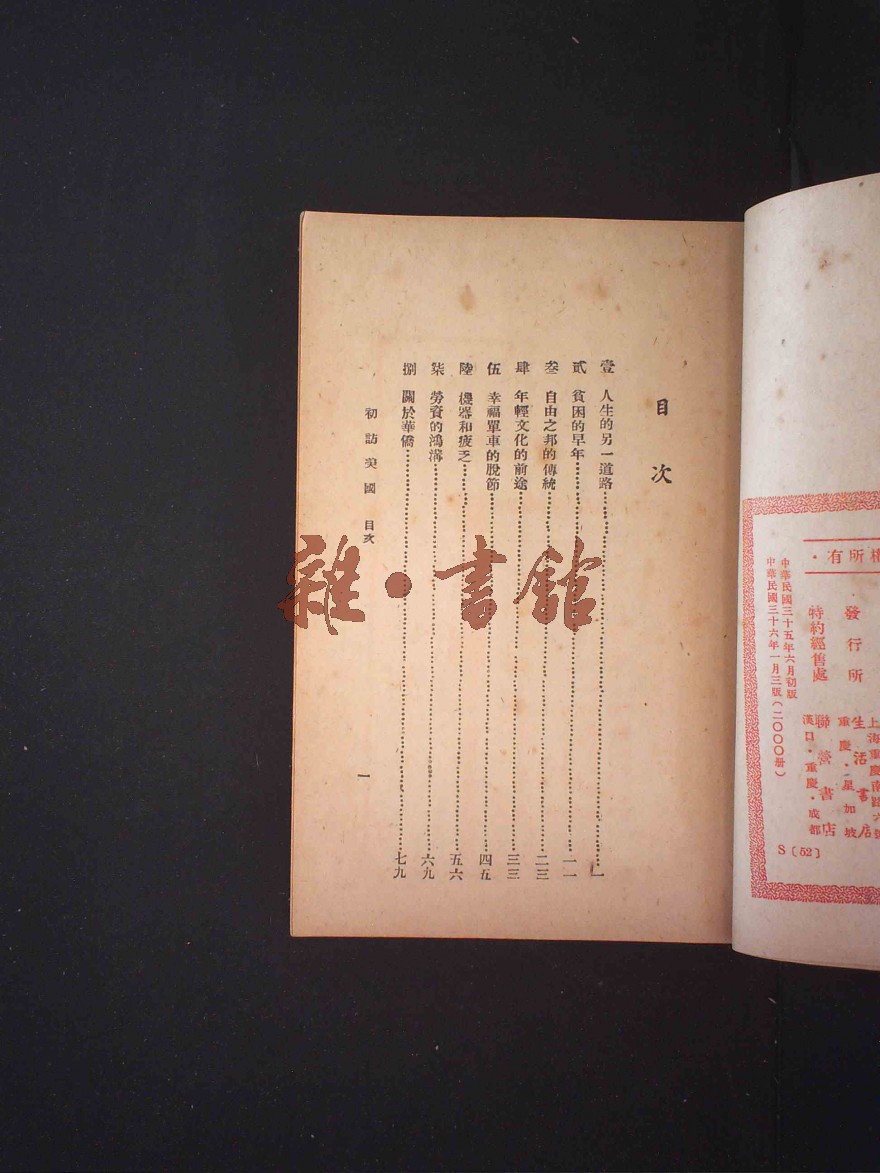 權所有·
上海重慶南路六號
生活書店
重慶·星加坡
發行所
聯營書店
漢口·重慶·成都
特約經售處
中華民國三十五年六月初版
中華民國三十六年一月三版(二〇〇〇册)
S〔52〕
目次
壹 人生的另一道路……一
貳 貧困的早年……一一
叁 自由之邦的傳統……二三
肆 年輕文化的前途……三三
伍 幸福單車的脫節……四五
陸 機器和疲乏……五六
柒 勞資的鴻溝……六九
捌 關於華僑……七九
初訪美國 目次
一
雜·書館